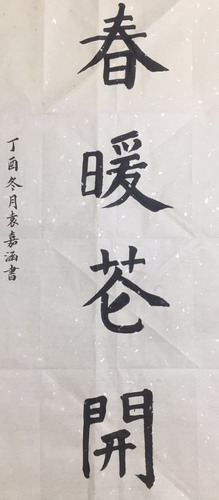 春暖花開
丁酉冬月袁嘉涵書